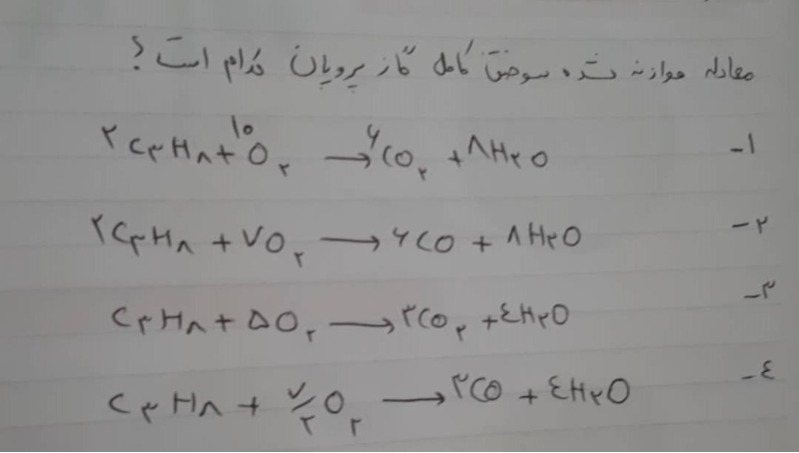 معادله موازنه شده سوختن کامل گاز پروپان کدام است؟
۱- ۲C۳H۸ + ۱۰O۲ → ۶CO۲ + ۸H۲O
۲- ۲C۳H۸ + ۷O۲ → ۶CO + ۸H۲O
۳- C۳H۸ + ۵O۲ → ۳CO۲ + ٤H۲O
٤- C۳H۸ + ۷/۲O۲ → ۳CO + ٤H۲O